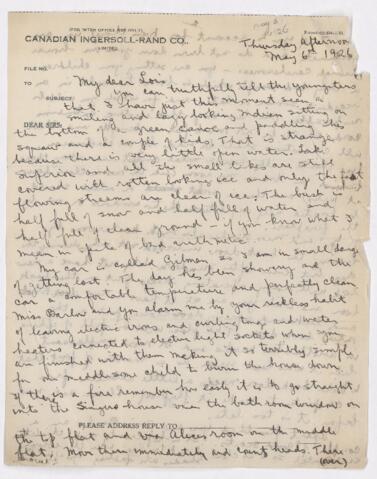 (FOR INTER OFFICE USE ONLY)
CANADIAN INGERSOLL-RAND CO.,
LIMITED
Thursday Afternoon
May 6th 1926
FILE NO.
TO
My dear Lois
You can truthfully tell the youngsters
SUBJECT:
that I have just this moment seen a
DEAR SIRS,
smiling and lazy looking Indian sitting on
the bottom of a green canoe and paddling his
squaw and a couple of kids. That is strange
because there is very little open water. Lake
Superior and all the small lakes are still
covered with rotten looking ice and only the fast
flowing streams are clear of ice. The bush is
half full of snow and half full of water and
half full of clear ground - if you know what I
mean in spite of bad arithmetic.
My car is called Gilman so I am in small danger
of getting lost. The day has been showery and the
car a comfortable temperature and perfectly clean
Miss Barlow and you alarm me by your reckless habit
of leaving electric irons and curling tongs and water
heaters connected to electric light sockets when you
are finished with them making it so terribly simple
for our meddlesome child to burn the house down.
If there is a fire remember how easily it is to go straight
into the Singers house via the bathroom window on
PLEASE ADDRESS REPLY TO
the top flat and via Alices room on the middle
flat. Move them immediately and count heads. There
(over)